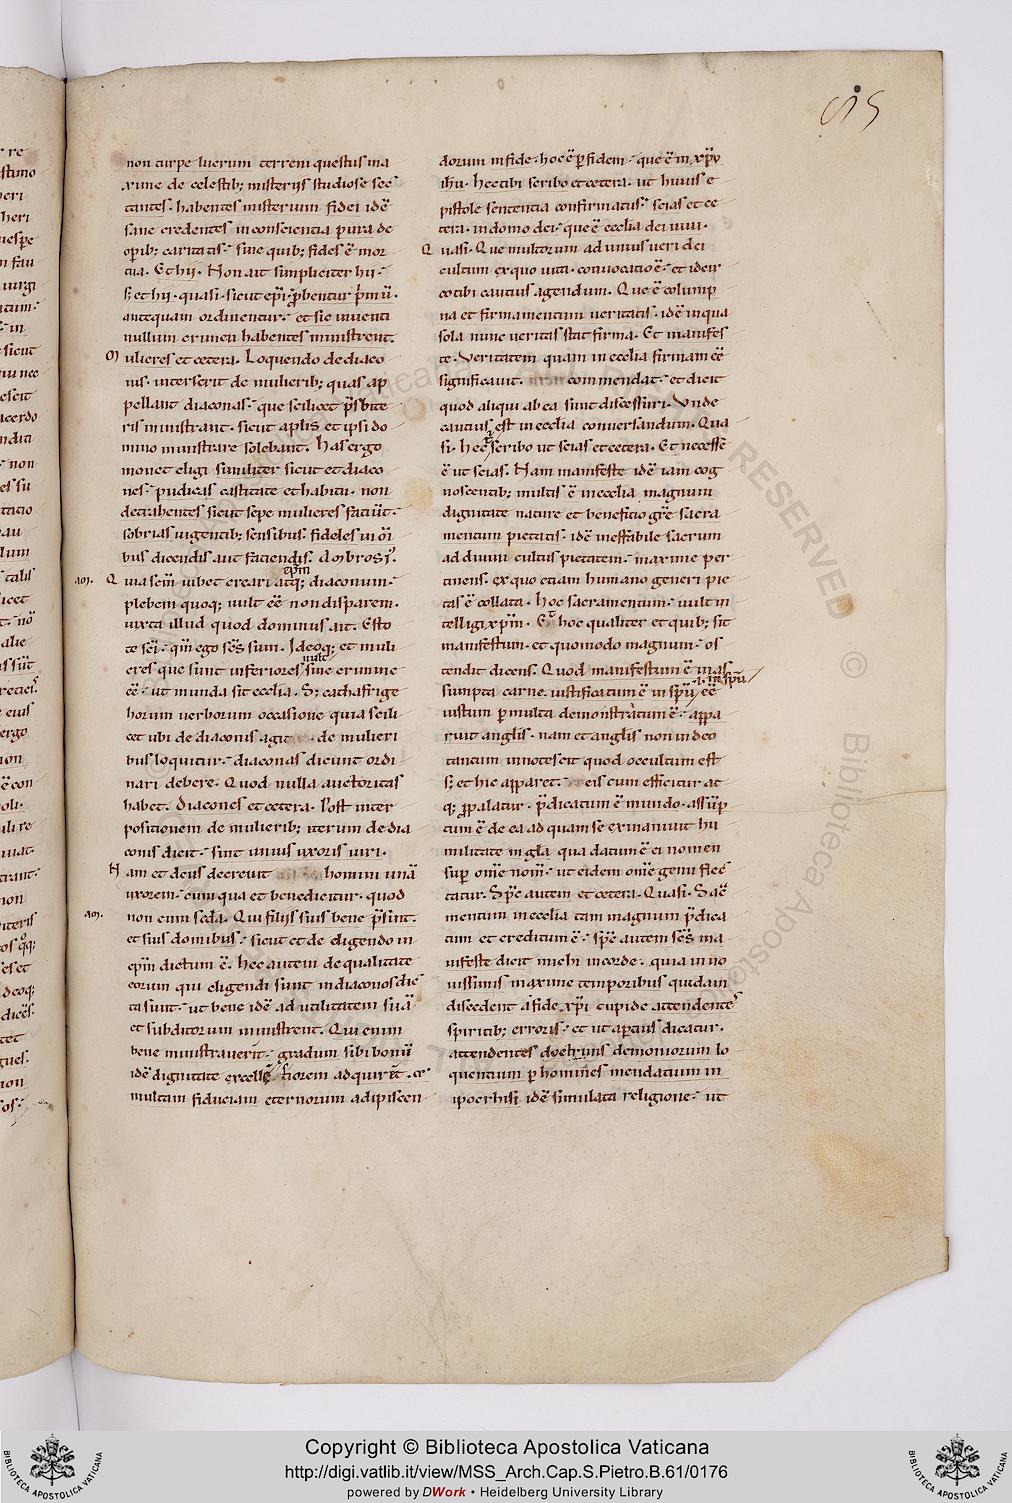 non turpe lucrum terreni questus ma
xime de celestib; misterijs studiose sec
tantes. habentes misterium fidei idē
sane credentes in conscientia pura de
opib; caritatis. sine quib; fides ē mor
tua. Et hij. Non ait simpliciter hij.
s; et hij. quasi. sicut epi. ꝓbentur p̄mū.
antequam ordinentur. et sic inuenti
nullum crimen habentes ministrent.
Mulieres et cetera. Loquendo de diaco
nis. interserit de mulierib; quas ap
pellant diaconas. que scilicet p̄sbite
ris ministrant. sicut aplis et ipsi do
mino ministrare solebant. Has ergo
monet eligi similiter sicut et diaco
nes. pudicas castitate et habitu. non
detrahentes sicut sepe mulieres faciūt.
sobrias uigentib; sensibus. fideles in oī
bus dicendis aut faciendis. Ambrosī.
epm
am. Quia sem iubet creari atq; diaconum.
plebem quoq; uult eē non disparem.
iuxta illud quod dominus ait. Esto
te sci. qm ego scs sum. Ideoq; et muli
uult
eres que sunt inferiores sine crimine
eē. ut munda sit ecclia. S; cathafrige
horum uerborum occasione quia scili
cet ubi de diaconis agit de mulieri
bus loquitur. diaconas dicunt ordi
nari debere. Quod nulla auctoritas
habet. Diacones et cetera. Post inter
positionem de mulierib; iterum de dia
conis dicit. sint unius uxoris uiri.
Nam et deus decreuit homini unā
uxorem. cum qua et benedicitur. quod
am. non cum scda. Qui filijs suis bene p̄sint.
et suis domibus. sicut et de eligendo in
epm dictum ē. hec autem de qualitate
eorum qui eligendi sunt in diaconos dic
ta sunt. ut bene idē ad utilitatem suā
et subditorum ministrent. Qui enim
bene ministrauerit. gradum sibi bonū
idē dignitate excellē tiorem adquiret. et
multam fiduciam eternorum adipiscen
dorum in fide. hoc ē ꝑ fidem. que ē in xp̄o
ihu. hec tibi scribo et cetera. ut huius e
pistole sententia confirmatus. scias et ce
tera. in domo dei. que ē ecclia dei uiui.
Quasi. Que multorum ad unius ueri dei
cultum ex quo uita. conuocatio ē. et idcir
co tibi cautius agendum. Que ē columpna
na et firmamentum ueritatis. idē in qua
sola nunc ueritas stat firma. Et manifes
te. Veritatem quam in ecclia firmam eē
significauit. commendat. et dicit
quod aliqui ab ea sunt discessuri. Vnde
cautius est in ecclia conuersandum. Qua
si. hec scribo ut scias et cetera. Et necesse
ē ut scias. Nam manifeste idē iam cog
noscentib; multis ē in ecclia magnum
dignitate nature et beneficio grē sacra
mentum pietatis. idē ineffabile sacrum
ad diuini cultus pietatem. maxime per
tinens. ex quo etiam humano generi pie
tas ē collata. hoc sacramentum. uult in
telligi xpm. Et hoc qualiter et quib; sit
manifestum. et quomodo magnum. os
tendit dicens. Quod manifestum ē in as
.i. in spū
sumpta carne. iustificatum ē in spū eē
iustum ꝑ multa demonstratum ē. appa
ruit anglis. nam et anglis non in deo
tantum innotescit quod occultum est
s; et hic apparet. eis cum efficitur at
q; ꝓpalatur. p̄dicatum ē mundo. assūp
tum ē de ea ad quam se exinaniuit hu
militate in gla qua datum ē ei nomen
sup omē nom. ut eidem omē genu flec
tatur. Spc autem et cetera. Quasi. Sac
mentum in ecclia tam magnum p̄dica
tum et creditum ē. spc autem scs ma
nifeste dicit michi in corde. quia in no
uissimis maxime temporibus quidam
discedent a fide xpi cupide attendentes
spiritib; erroris. et ut apcius dicatur.
attendentes doctrinis demoniorum lo
quentium ꝑ homines mendatium in
ipocrhisi idē simulata religione. ut
Copyright © Biblioteca Apostolica Vaticana
http://digi.vatlib.it/view/MSS_Arch.Cap.S.Pietro.B.61/0176
powered by DWork • Heidelberg University Library